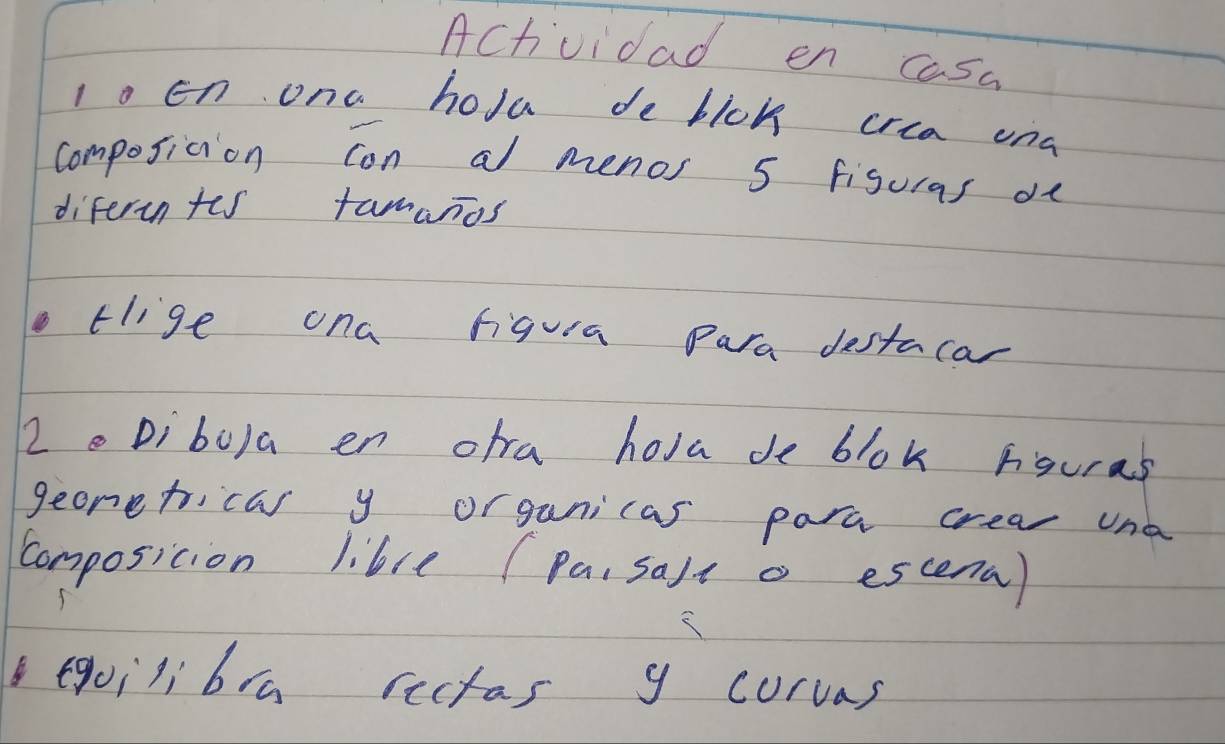 Actividad en casa
1. En una hoja de blok crea una
composición con al menos 5 figuras de
diferentes tamaños
• Elige una figura para destacar
2. Dibuja en otra hoja de blok figuras
geometricas y organicas para crear una
composicion libre (paisaje o escena)
• equilibra rectas y curvas